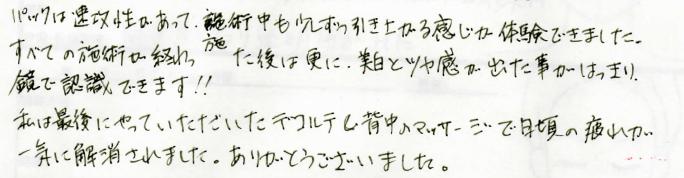 パックは速攻性があって、施術中も少しずつ引き上がる感じが体験できました。
すべての施術が終わった後は更に、美白とツヤ感が出た事がはっきり、
鏡で認識できます!!
私は最後にやっていただいたデコルテと背中のマッサージで日頃の疲れが
一気に解消されました。ありがとうございました。